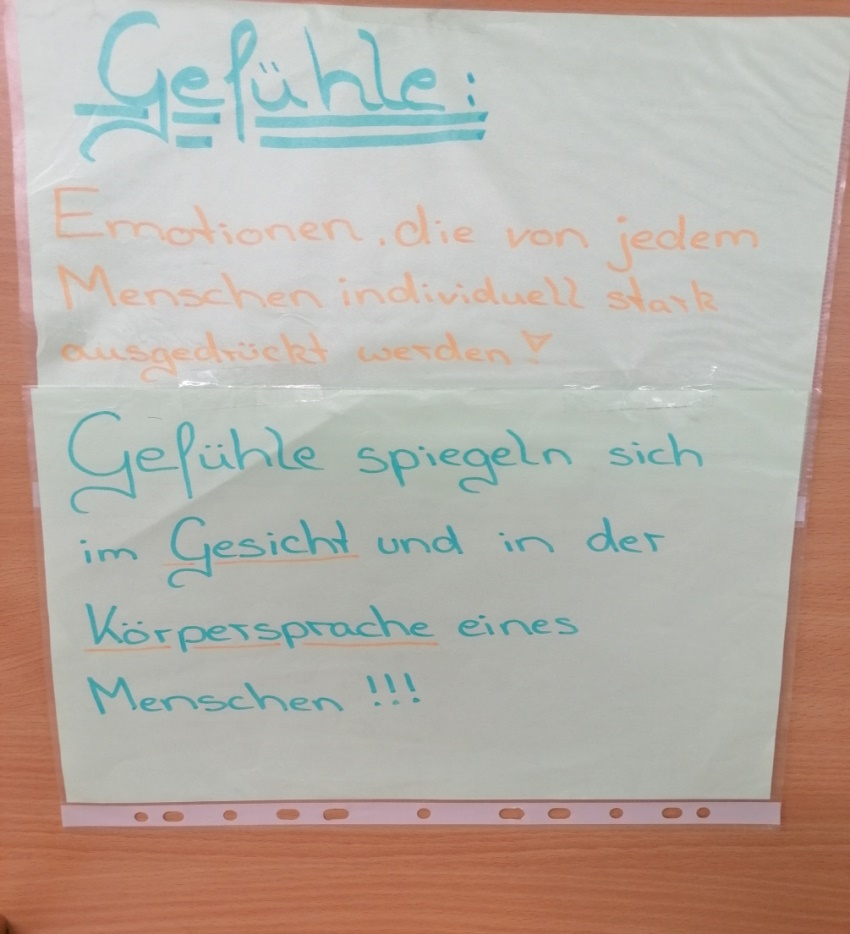 Gefühle:
Emotionen, die von jedem
Menschen individuell stark
ausgedrückt werden!
Gefühle spiegeln sich
im Gesicht und in der
Körpersprache eines
Menschen !!!